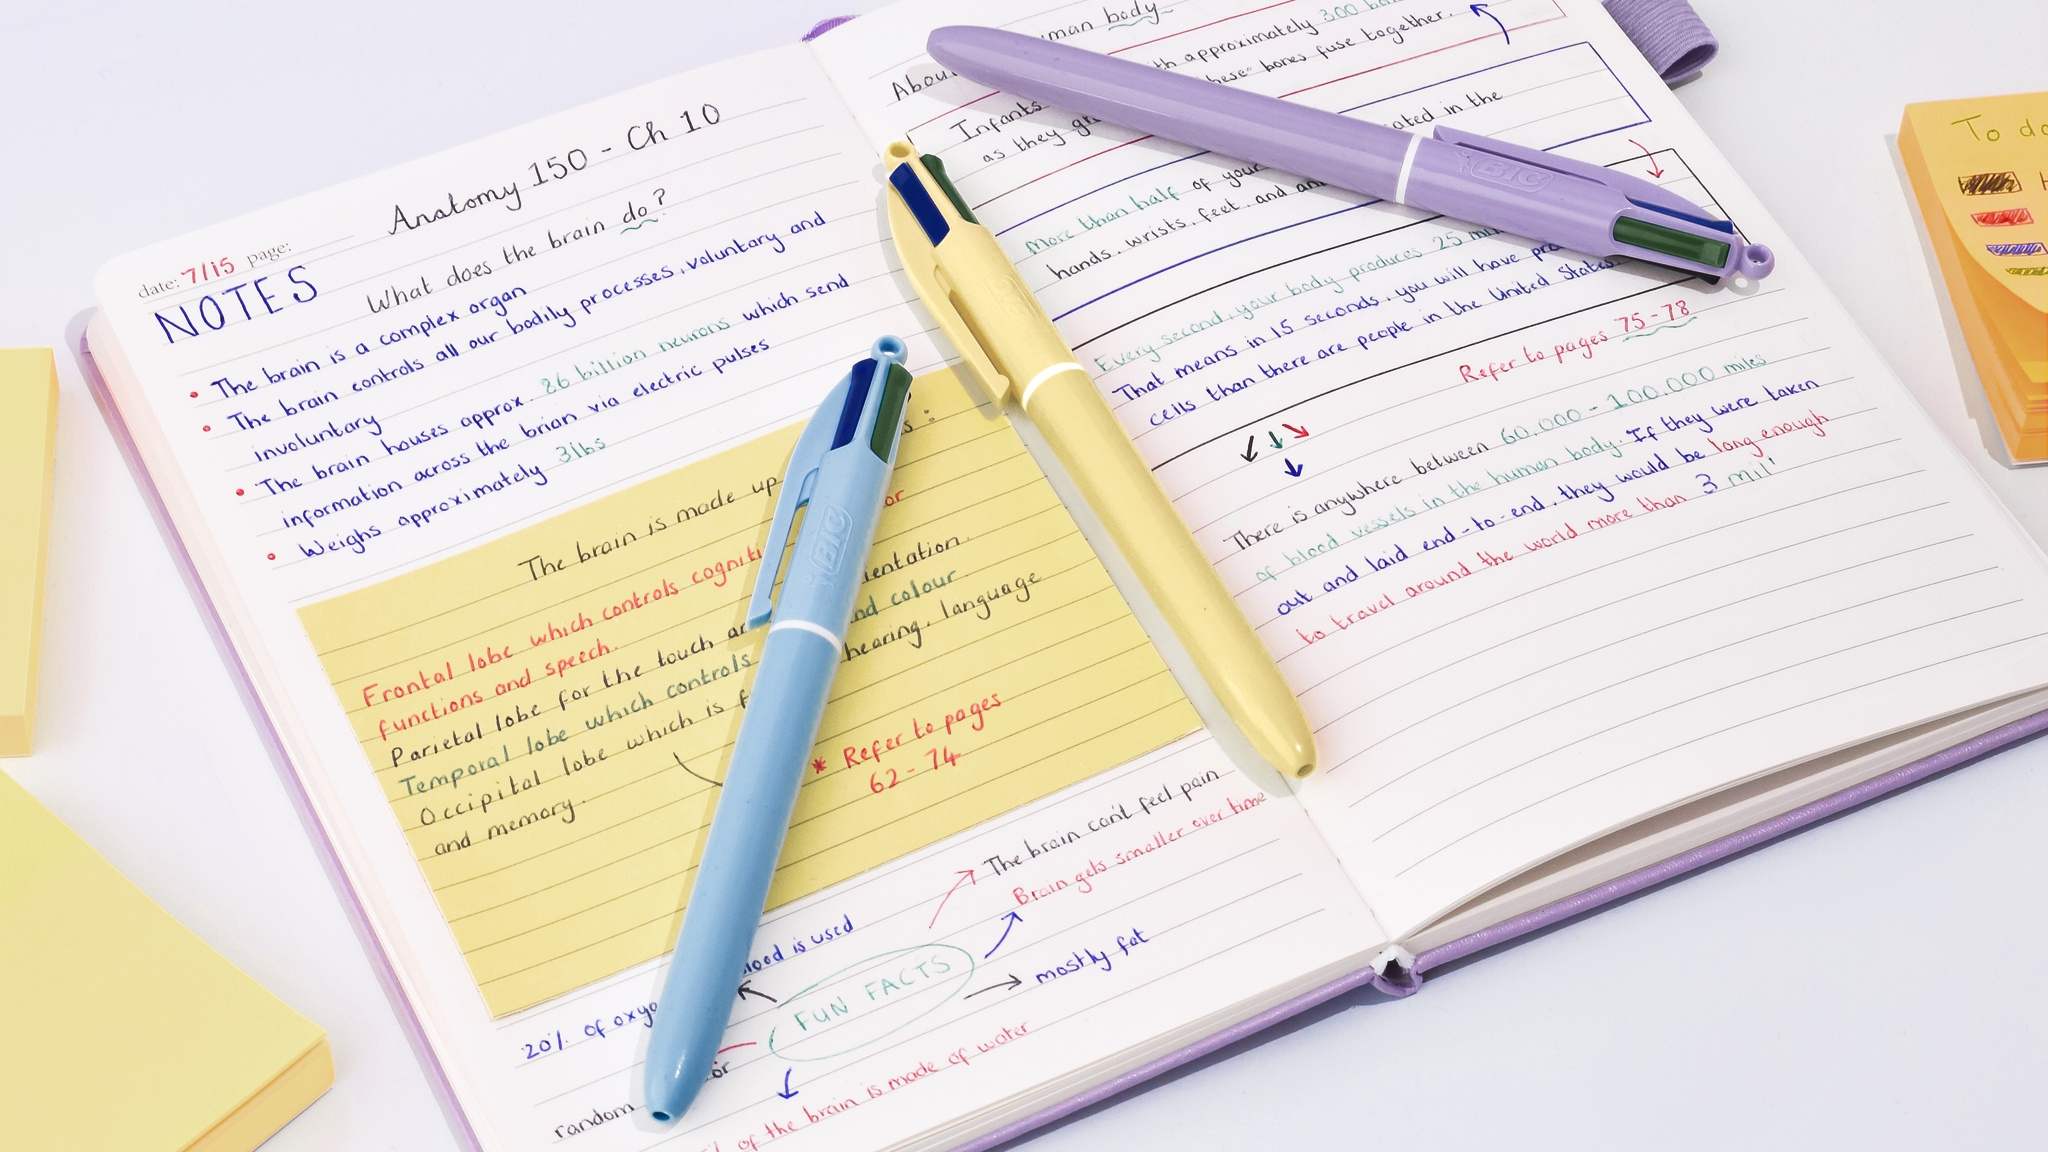 Anatomy 150 - Ch 10
date: 7/15 page:
NOTES
What does the brain do?
• The brain is a complex organ
• The brain controls all our bodily processes, voluntary and
involuntary
• The brain houses approx. 86 billion neurons which send
information across the brian via electric pulses
• Weighs approximately 3lbs
The brain is made up
Frontal lobe which controls
functions and speech.
Parietal lobe for the touch
Temporal lobe which controls and colour.
Occipital lobe which is hearing, language
and memory.
* Refer to pages
62-74
The brain can't feel pain
Brain gets smaller over time
mostly fat
FUN FACTS
20% of is used
random
of the brain is made of water
body
approximately 300
Infants these bones fuse together.
as they
More than half of your in the
hands, wrists, feet, and
Every second, your body produces 25
That means in 15 seconds, you will have
cells than there are people in the United States.
Refer to pages 75-78
There is anywhere between 60,000 - 100,000 miles
of blood vessels in the human body. If they were taken
out and laid end-to-end, they would be long enough
to travel around the world more than 3
BIC
BIC
To do